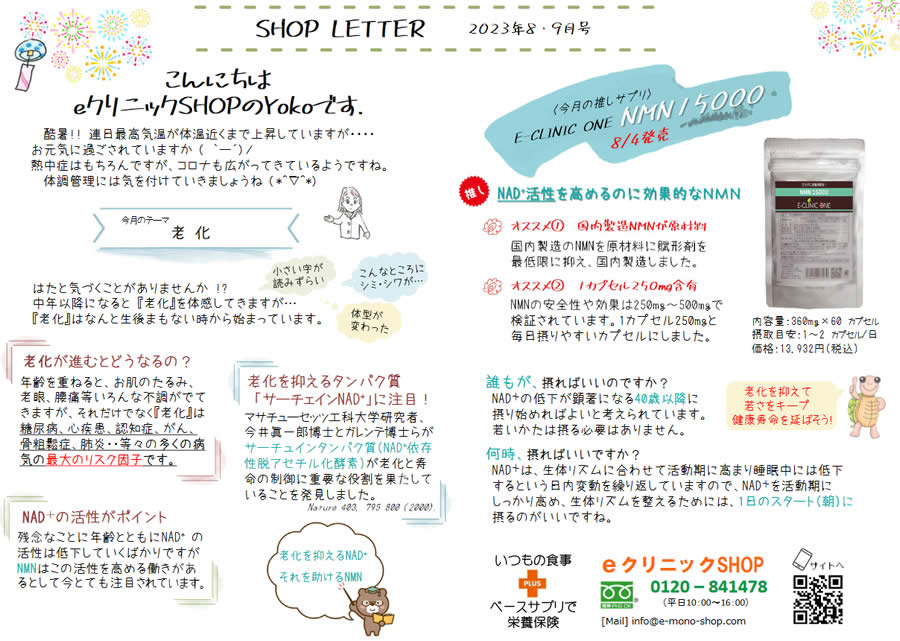 SHOP LETTER 2023年8・9月号
こんにちは
eクリニックSHOPのYokoです.
酷暑!! 連日最高気温が体温近くまで上昇していますが・・・・
お元気に過ごされていますか ( ｀ー´)ノ
熱中症はもちろんですが、コロナも広がってきているようですね。
体調管理には気を付けていきましょうね (*^▽^*)
今月のテーマ
老 化
はたと気づくことがありませんか !?
中年以降になると『老化』を体感してきますが…
『老化』はなんと生後まもない時から始まっています。
小さい字が
読みずらい
こんなところに
シミ・シワが…
体型が
変わった
老化が進むとどうなるの？
年齢を重ねると、お肌のたるみ、
老眼、腰痛等いろんな不調がでて
きますが、それだけでなく『老化』は
糖尿病、心疾患、認知症、がん、
骨粗鬆症、肺炎・・等々の多くの病
気の最大のリスク因子です。
NAD⁺の活性がポイント
残念なことに年齢とともにNAD⁺ の
活性は低下していくばかりですが
NMNはこの活性を高める働きがあ
るとして今とても注目されています。
老化を抑えるタンパク質
「サーチェインNAD⁺」に注目！
マサチューセッツ工科大学研究者、
今井眞一郎博士とガレンテ博士らが
サーチュインタンパク質(NAD⁺依存
性脱アセチル化酵素)が老化と寿
命の制御に重要な役割を果たして
いることを発見しました。
Nature 403, 795 800 (2000).
老化を抑えるNAD⁺
それを助けるNMN
〈今月の推しサプリ〉
E-CLINIC ONE NMN15000
8/4発売
推し NAD⁺活性を高めるのに効果的なNMN
オススメ① 国内製造NMNが原材料
国内製造のNMNを原材料に賦形剤を
最低限に抑え、国内製造しました。
オススメ② 1カプセル250mg含有
NMNの安全性や効果は250mg～500mgで
検証されています。1カプセル250mgと
毎日摂りやすいカプセルにしました。
NMN 15000
E-CLINIC ONE
内容量:360mg×60 カプセル
摂取目安:1～2 カプセル/日
価格:13,932円(税込)
誰もが、摂ればいいのですか？
NAD⁺の低下が顕著になる40歳以降に
摂り始めればよいと考えられています。
若いかたは摂る必要はありません。
老化を抑えて
若さをキープ
健康寿命を延ばそう!
何時、摂ればいいですか？
NAD⁺は、生体リズムに合わせて活動期に高まり睡眠中には低下
するという日内変動を繰り返していますので、NAD⁺を活動期に
しっかり高め、生体リズムを整えるためには、1日のスタート(朝)に
摂るのがいいですね。
いつもの食事
PLUS
ベースサプリで
栄養保険
eクリニックSHOP
0120－841478
(平日10:00～16:00)
[Mail] info@e-mono-shop.com
サイトへ